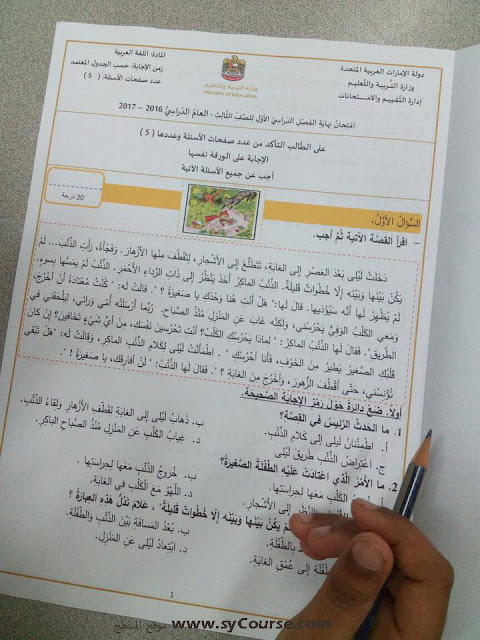 دولة الإمارات العربية المتحدة
وزارة التربية والتعليم
إدارة التقييم والامتحانات
وزارة التربية والتعليم
Ministry of Education
المادة: اللغة العربية
زمن الإجابة: حسب الجدول المعتمد
عدد صفحات الأسئلة: ( 5 )
امتحان نهاية الفصل الدراسي الأول للصف الثالث - العام الدراسي 2016 – 2017
على الطالب التأكد من عدد صفحات الأسئلة وعددها ( 5 )
الإجابة على الورقة نفسها
أجب عن جميع الأسئلة الآتية
20 درجة
السؤال الأول.
- اقرأ القصة الآتية ثم أجب.
دخلت ليلى بعد العصر إلى الغابة، تتطلع إلى الأشجار، لتقطف منها الأزهار. وفجأة، رأت الذئب... لم
يكن بينها وبينه إلا خطوات قليلة. الذئب الماكر أخذ ينظر إلى ذات الرداء الأحمر. الذئب لم يمسها بسوء،
لم يظهر لها أنه سيؤذيها. قال لها:" هل أنت هنا وحدك يا صغيرة ؟ ". قالت له: " كنت معتادة أن أخرج،
ومعي الكلب الوفي يحرسني، ولكنه غاب عن المنزل منذ الصباح. ربما أرسلته أمي ورائي، ليلحقني في
الطريق". فقال لها الذئب الماكر: " لماذا يحرسك الكلب؟ أنت تحرسين نفسك، من أي شيء تخافين؟ إن كان
قلبك الصغير يطير من الخوف، فأنا أحرسك " . اطمأنت ليلى لكلام الذئب الماكر، وقالت له: "هل تبقى
تؤنسني، حتى أقطف الزهور، وأخرج من الغابة ؟ ". فقال لها الذئب: " لن أفارقك، يا صغيرة ! ".
أولا. ضع دائرة حول رمز الإجابة الصحيحة.
1. ما الحدث الرئيس في القصة؟
أ. اطمئنان ليلى إلى كلام الذئب.
ب. ذهاب ليلى إلى الغابة لقطف الأزهار ولقاء الذئب.
ج. اعتراض الذئب طريق ليلى
د. غياب الكلب عن المنزل منذ الصباح الباكر.
2. ما الأمر الذي اعتادت عليه الطفلة الصغيرة؟
الكلب معها لحراستها.
ب. خروج الذئب معها لحراستها.
النظر إلى الأشجار.
د. اللهو مع الكلب في الغابة.
يكن بينها وبينه إلا خطوات قليلة" . علام تدل هذه العبارة ؟
بالطفلة.
ب. بعد المسافة بين الذئب والطفلة.
إلى عمق الغابة.
د. ابتعاد ليلى عن المنزل.
1
موقع المناهج www.syCourse.com